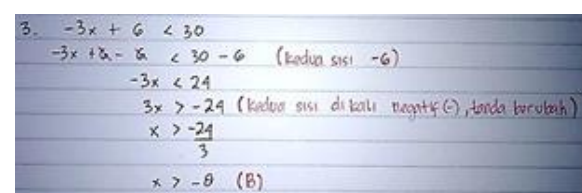 3. -3x + 6 < 30
-3x + 6 - 6 < 30 - 6 (kedua sisi -6)
-3x < 24
3x > -24 (kedua sisi dikali negatif (-), tanda berubah)
x > -24/3
x > -8 (B)